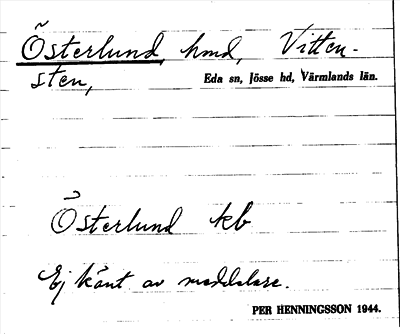 Österlund, hmd, Vitten-
sten,
Eda sn, Jösse hd, Värmlands län.
Österlund kb
Ej känt av meddelare.
PER HENNINGSSON 1944.